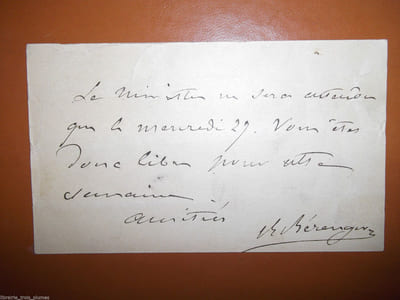 Le Ministre ne sera attendu
que le mercredi 29. Vous êtes
donc libre pour cette
semaine
amitiés
R Bérenger
libraire_trois_plumes